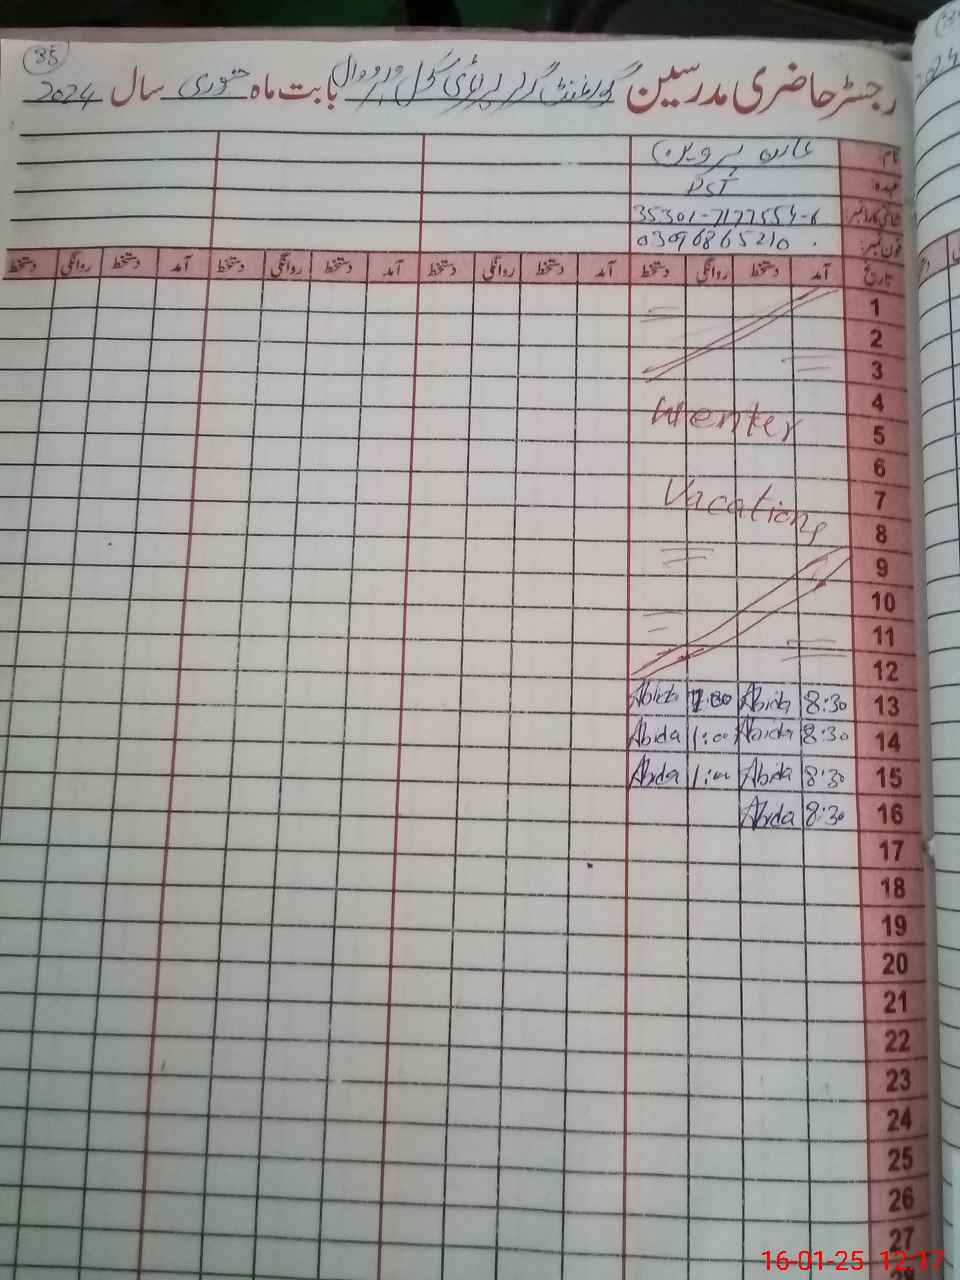 35
رجسٹر حاضری مدرسین گورنمنٹ گرلز بابت ماہ جنوری سال 2024
نام: عابدہ پروین
عہدہ: PST
شناختی کارڈ نمبر 35301-7177554-6
فون نمبر: 03096865210
تاریخ آمد دستخط روانگی دستخط آمد دستخط روانگی دستخط آمد دستخط روانگی دستخط آمد دستخط روانگی دستخط
1
2
3
4
Wenter
5
6
7
Vacations
8
9
10
11
12
13 8:30 Abida 1:00 Abida
14 8:30 Abida 1:00 Abida
15 8:30 Abida 1:00 Abida
16 8:30 Abida
17
18
19
20
21
22
23
24
25
26
27
16-01-25 12:17